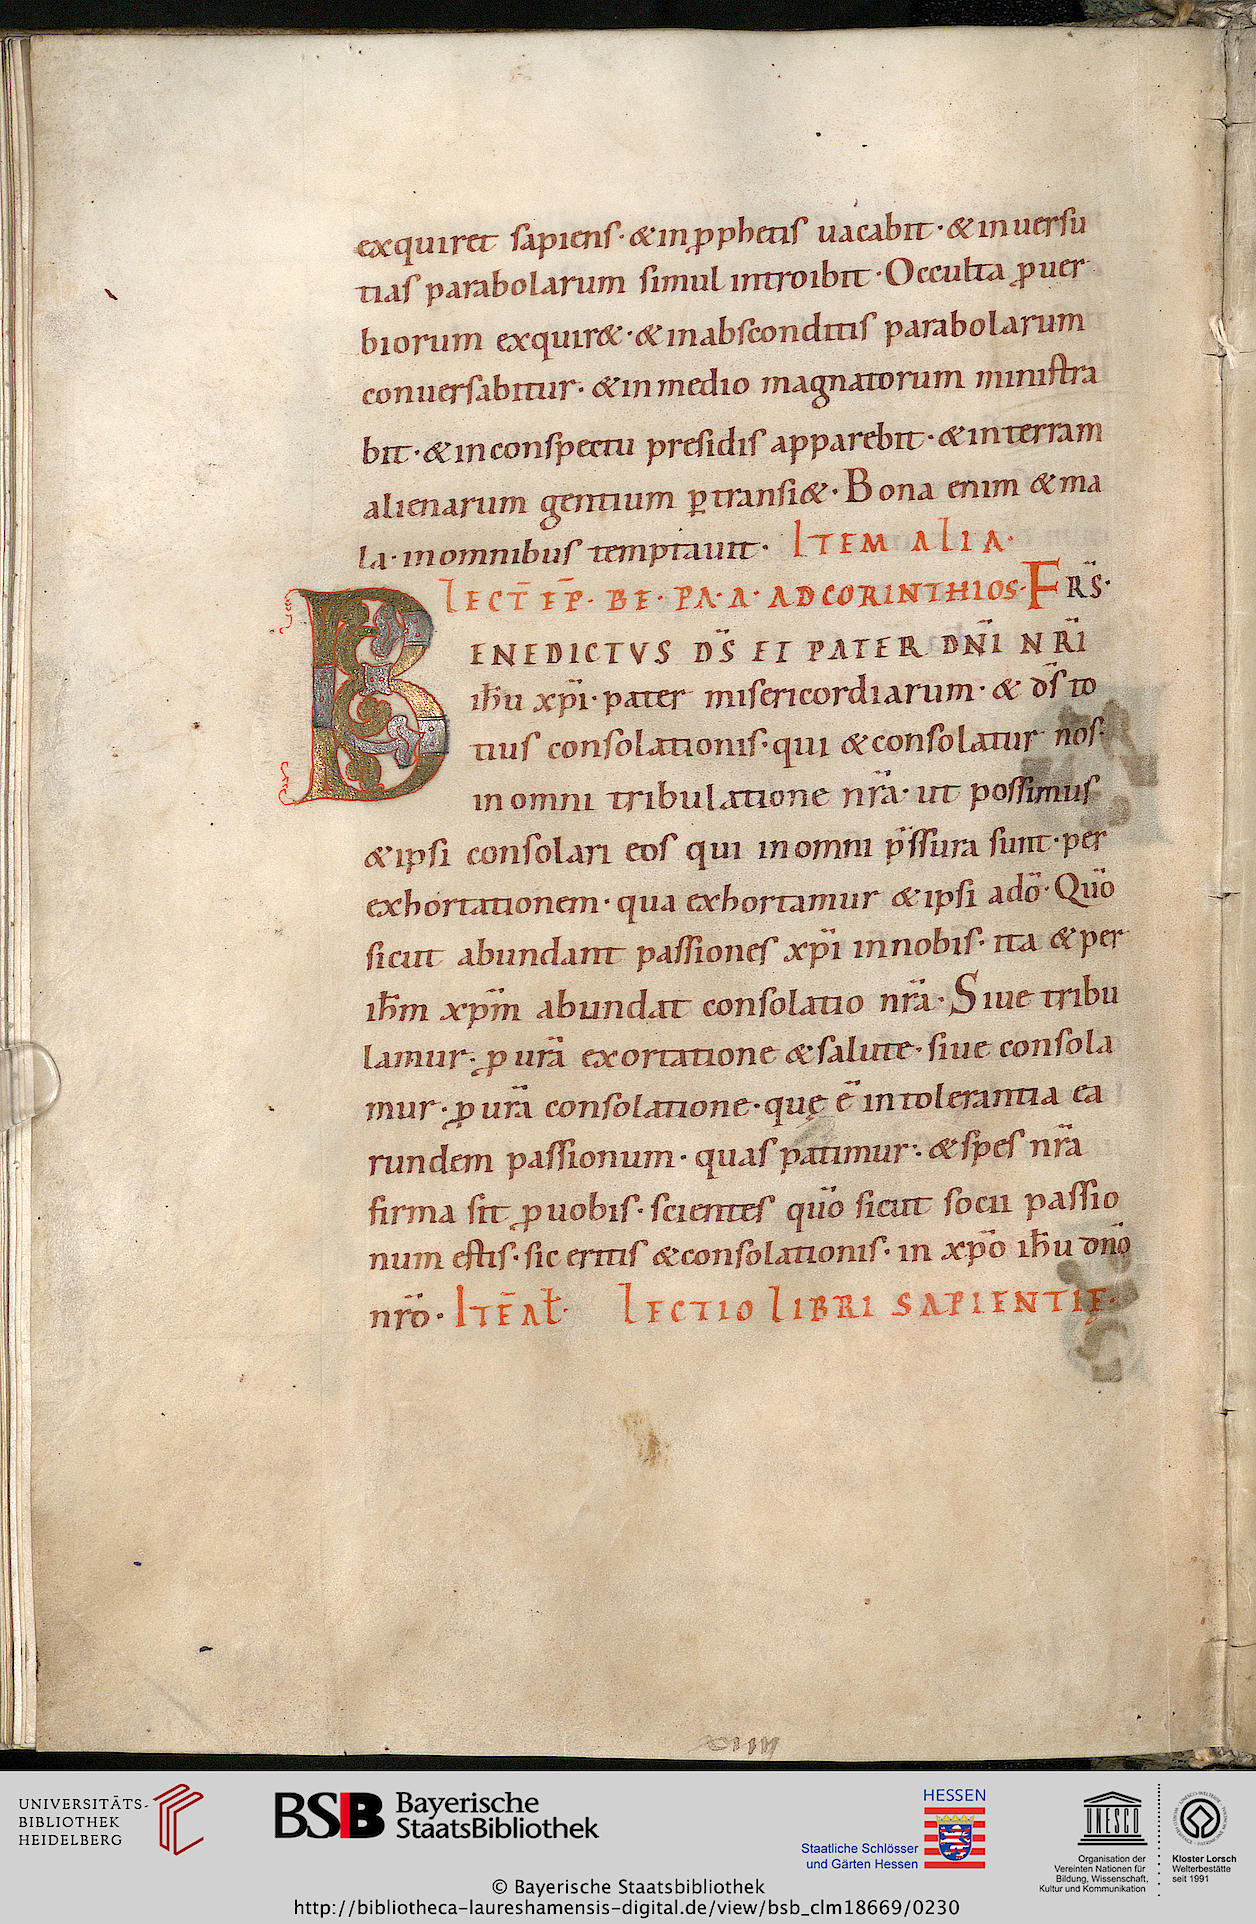 exquiret sapiens· &in ꝓphetis uacabit· &inuersu
tias parabolarum simul introibit· Occulta ꝓuer
biorum exquir&· &inabsconditis parabolarum
conuersabitur· &inmedio magnatorum ministra
bit· &inconspectu presidis apparebit· &interram
alienarum gentium ꝑtransi&· Bona enim &ma
la· inomnibus temptauit· ITEM ALIA·
LECT̄ EP̄· BE· PA· A· ADCORINTHIOS· FRS̄·
BENEDICTVS DS̄ ET PATER DN̄I NR̄I
ih̄u xp̄i· pater misericordiarum· & ds̄ to
tius consolationis· qui &consolatur nos·
inomni tribulatione nr̄a· ut possimus
&ipsi consolari eos qui inomni p̄ssura sunt· per
exhortationem· qua exhortamur &ipsi adō· Qūo
sicut abundant passiones xp̄i innobis· ita &per
ih̄m xp̄m abundat consolatio nr̄a· Siue tribu
lamur· ꝓ ur̄a exortatione &salute· siue consola
mur· ꝓ ur̄a consolatione· quę ē intolerantia ea
rundem passionum· quas patimur· &spes nr̄a
firma sit ꝓ uobis· scientes qūo sicut socii passio
num estis· sic eritis &consolationis· in xp̄o ih̄u dn̄o
nr̄o· ITĒ AL̄· LECTIO LIBRI SAPIENTIĘ·
UNIVERSITÄTS-
BIBLIOTHEK
HEIDELBERG
BSB Bayerische
StaatsBibliothek
HESSEN
Staatliche Schlösser
und Gärten Hessen
UNESCO
Organisation der
Vereinten Nationen für
Bildung, Wissenschaft,
Kultur und Kommunikation
Kloster Lorsch
Welterbestätte
seit 1991
© Bayerische Staatsbibliothek
http://bibliotheca-laureshamensis-digital.de/view/bsb_clm18669/0230